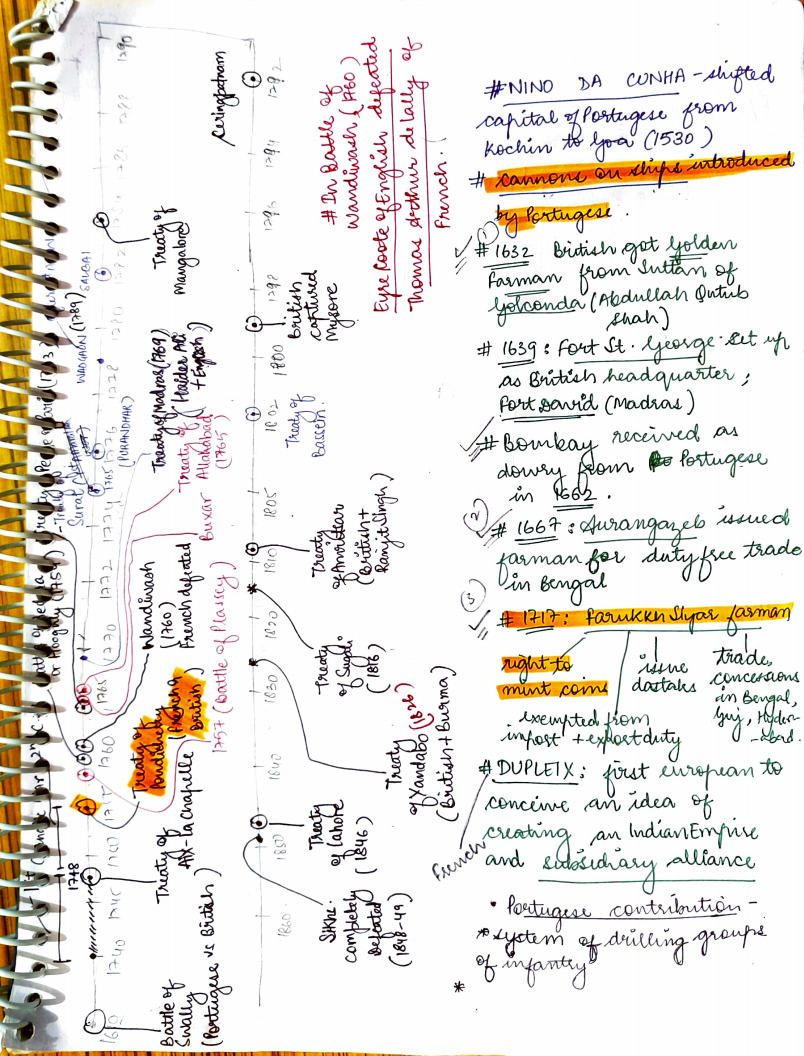 #NINO DA CUNHA - shifted
capital of Portugese from
Kochin to Goa (1530)
# cannons on ships introduced
by Portugese.
①
# 1632 British got Golden
Farman from Sultan of
Golconda (Abdullah Qutub
Shah)
# 1639: Fort St. George Set up
as British headquarter;
Fort David (Madras)
# Bombay received as
dowry from Portugese
in 1662.
②
# 1667: Aurangazeb issued
farman for duty free trade
in Bengal
③
# 1717: Farukkh Siyar farman
right to
mint coins
issue
dastaks
trade,
concessions
in Bengal,
Guj, Hyder-
-abad.
exempted from
import + export duty
# DUPLEIX: first european to
conceive an idea of
creating an Indian Empire
and subsidiary alliance
French
• Portugese contribution -
* system of drilling groups
of infantry
*
# In Battle of
Wandiwash (1760)
Eyre Coote of English defeated
Thomas Arthur de Lally of
French.
1740
1745
1748
1760
1765
1770
1772
1774
1778
1780
1782
1790
Battle of
Swally
(Portugese vs British)
Treaty of
Aix-La Chapelle
Treaty of
Pondicherry
(French &
British)
1757 (Battle of Plassey)
Wandiwash
(1760)
French defeated
Buxar
Treaty of
Allahabad
(1765)
Treaty of Madras (1769)
(Haider Ali
+ English)
(PURANDHAR)
1765
Treaty of
Surat
WADGAON (1789)
SALBAI
Treaty of
Mangalore
Seringpatnam
1792
1794
1798
1800
1802
1805
1810
1820
1830
1840
1850
British
captured
Mysore
Treaty of
Bassein.
Treaty
of Amritsar
(British +
Ranjit Singh)
Treaty
of Sugali
(1816)
Treaty
of Yandabo (1826)
(British + Burma)
Treaty
of Lahore
(1846)
Sikhs
completely
defeated
(1848-49)